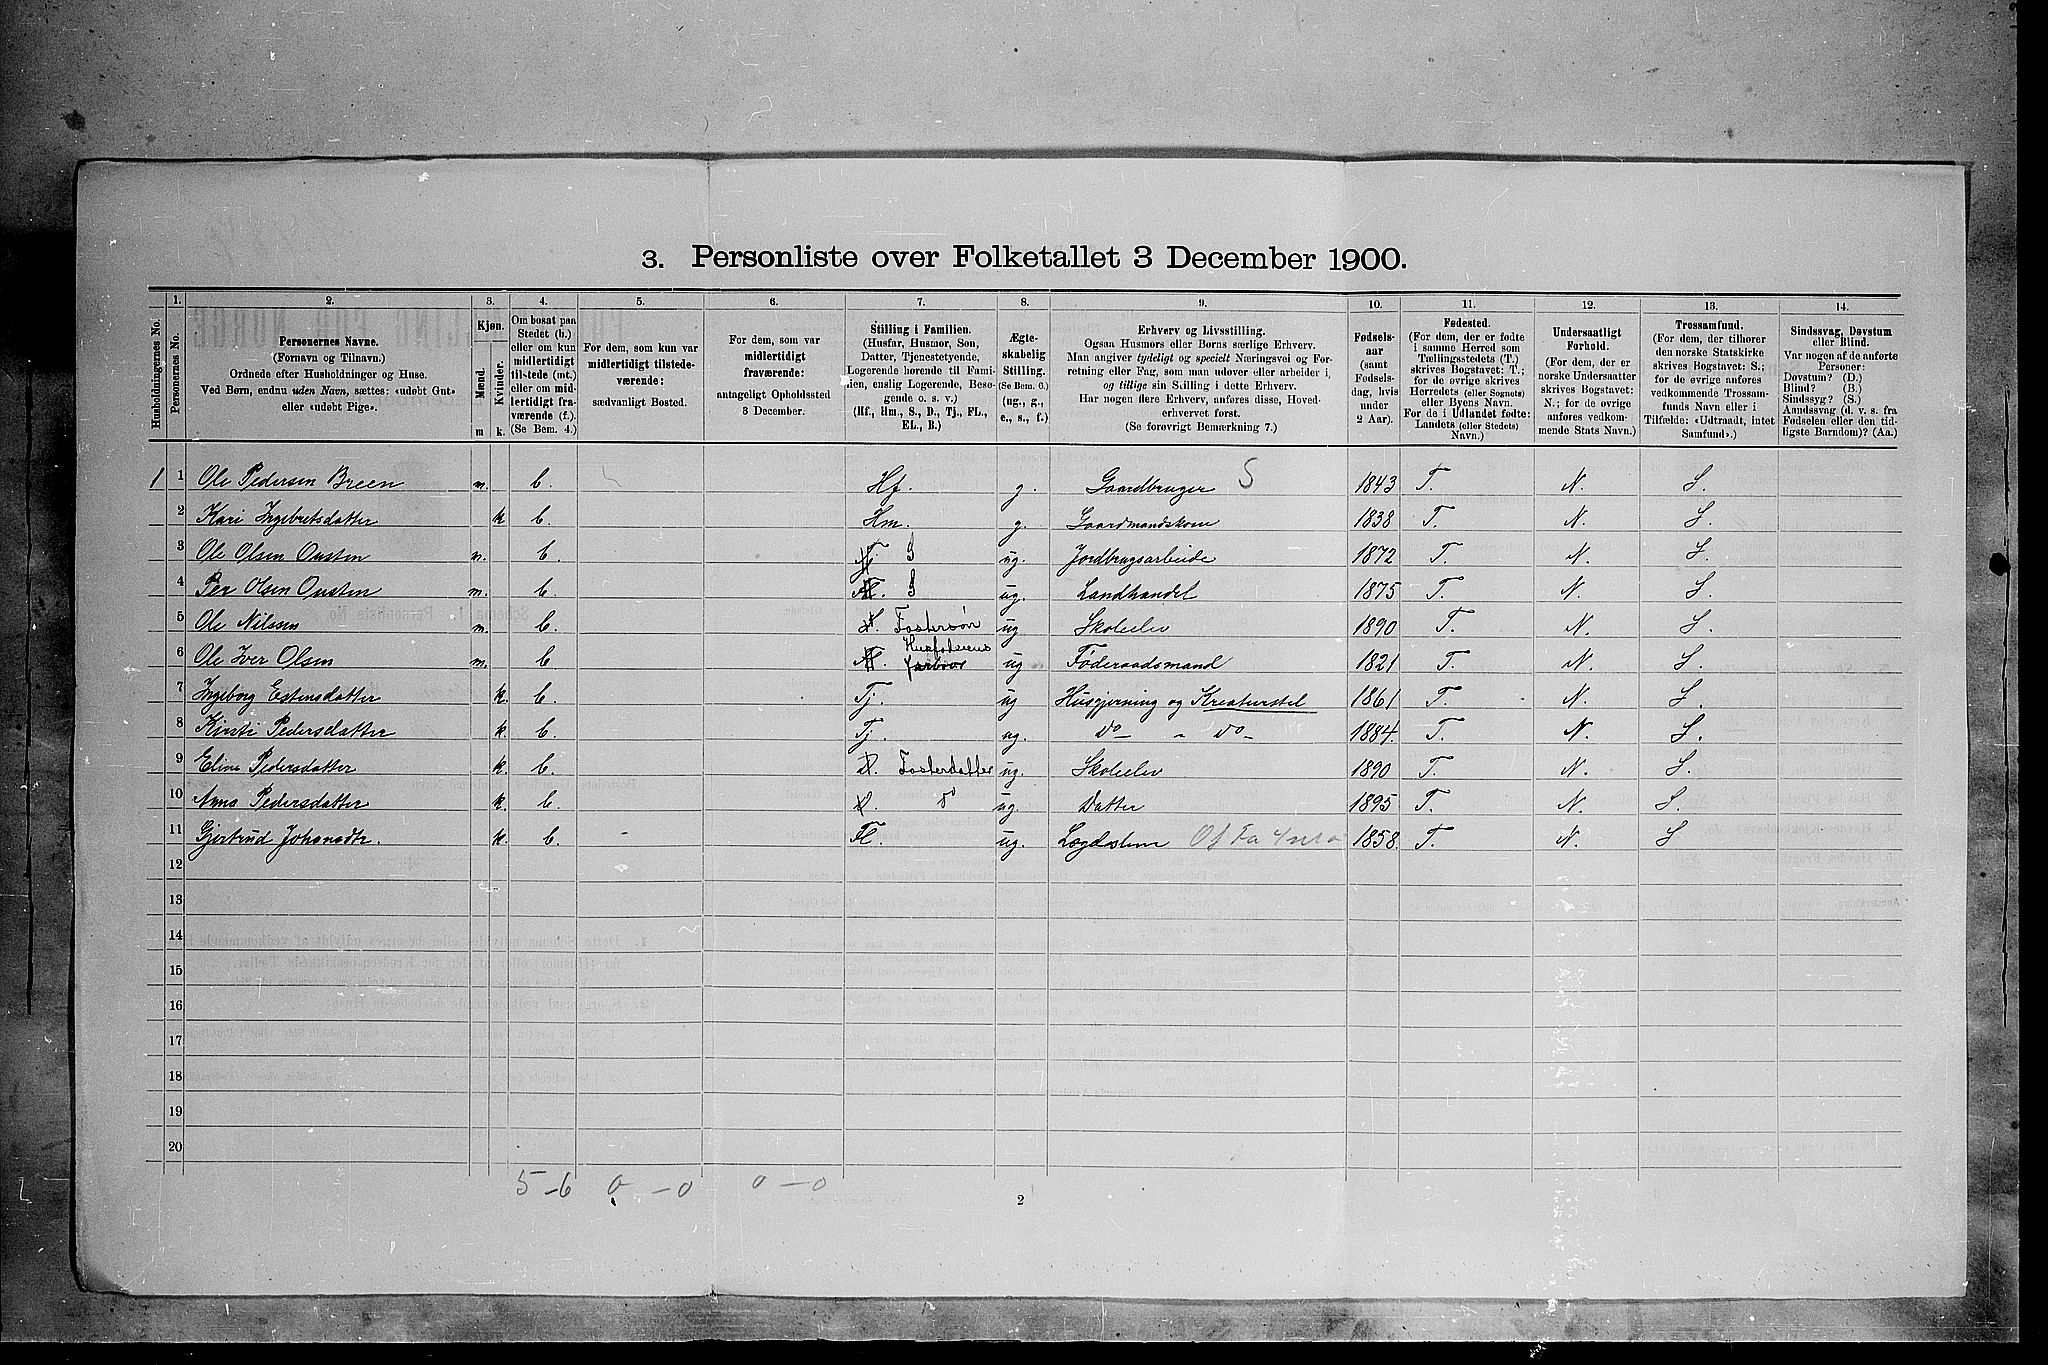 3. Personliste over Folketallet 3 December 1900.
Husholdningernes No.
1.
Personernes No.
2.
Personernes Navne.
(Fornavn og Tilnavn.)
Ordnede efter Husholdninger og Huse.
Ved Børn, endnu uden Navn, sættes: «udøbt Gut»
eller «udøbt Pige».
3.
Kjøn.
Mænd.
Kvinder.
m k.
4.
Om bosat paa
Stedet (b.)
eller om kun
midlertidigt
tilstede (mt.)
eller om mid-
lertidigt fra-
værende (f.).
(Se Bem. 4.)
5.
For dem, som kun var
midlertidigt tilstede-
værende:
sædvanligt Bosted.
6.
For dem, som var
midlertidigt
fraværende:
antageligt Opholdssted
3 December.
7.
Stilling i Familien.
(Husfar, Husmor, Søn,
Datter, Tjenestetyende,
Logerende hørende til Fami-
lien, enslig Logerende, Besø-
gende o. s. v.)
(Hf., Hm., S., D., Tj., FL.,
EL., B.)
8.
Ægte-
skabelig
Stilling.
(Se Bem. 6.)
(ug., g.,
e., s., f.)
9.
Erhverv og Livsstilling.
Ogsaa Husmors eller Børns særlige Erhverv.
Man angiver tydeligt og specielt Næringsvei og For-
retning eller Fag, som man udøver eller arbeider i,
og tillige sin Stilling i dette Erhverv.
Har nogen flere Erhverv, anføres disse, Hoved-
erhvervet først.
(Se forøvrigt Bemærkning 7.)
10.
Fødsels-
aar
(samt
Fødsels-
dag, hvis
under
2 Aar).
11.
Fødested.
(For dem, der er fødte
i samme Herred som
Tællingsstedets (T.)
skrives Bogstavet: T.;
for de øvrige skrives
Herredets (eller Sognets)
eller Byens Navn.
For de i Udlandet fødte:
Landets (eller Stedets)
Navn.)
12.
Undersaatligt
Forhold.
(For dem, der er
norske Undersaatter
skrives Bogstavet:
N.; for de øvrige
anføres vedkom-
mende Stats Navn.)
13.
Trossamfund.
(For dem, der tilhører
den norske Statskirke
skrives Bogstavet: S.;
for de øvrige anføres
vedkommende Trossam-
funds Navn eller i
Tilfælde: «Udtraadt, intet
Samfund».)
14.
Sindssvag, Døvstum
eller Blind.
Var nogen af de anførte
Personer:
Døvstum? (D.)
Blind? (B.)
Sindssyg? (S.)
Aandssvag (d. v. s. fra
Fødselen eller den tid-
ligste Barndom)? (Aa.)
1 1 Ole Pedersen Breen m. b. Hf. g. Gaardbruger S 1843 T. N. S.
2 Kari Ingebretsdatter k b. Hm. g. Gaardmandskone 1838 T. N. S.
3 Ole Olsen Ousten m. b. S ug. Jordbrugsarbeide 1872 T. N. S.
4 Per Olsen Ousten m. b. S ug. Landhandel 1875 T. N. S.
5 Ole Nilssen m. b. Fostersøn ug Skoleelev 1890 T. N. S.
6 Ole Iver Olsen m. b. Husfaderens farbror ug Føderaadsmand 1821 T. N. S.
7 Ingeborg Estensdatter k. b. Tj. ug Husgjerning og Kreaturstel 1861 T. N. S.
8 Kirsti Pedersdatter k. b. Tj. ug. Do – " Do – 1884. T. N. S.
9 Eline Pedersdatter k. b. Fosterdatter ug. Skoleelev 1890 T. N. S.
10 Anna Pedersdatter k. b. do ug. Datter 1895 T. N. S.
11 Gjertrud Johansdtr. k. b. Fl. ug. Lægdslem 1858. T. N. S
12
13
14
15
16
17
18
19
20
5 – 6 0 – 0 0 – 0
2